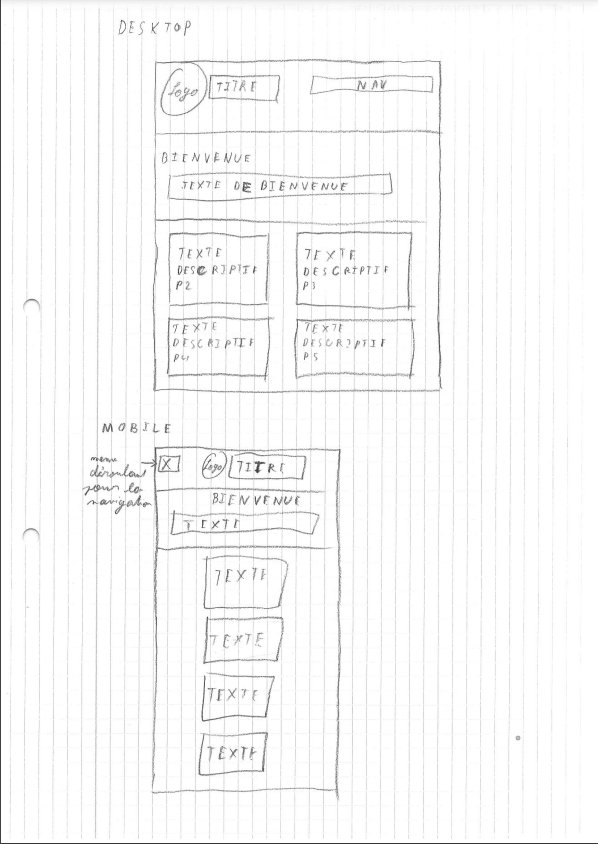 DESKTOP
logo TITRE NAV
BIENVENUE
TEXTE DE BIENVENUE
TEXTE
DESCRIPTIF
P2
TEXTE
DESCRIPTIF
P3
TEXTE
DESCRIPTIF
P4
TEXTE
DESCRIPTIF
P5
MOBILE
menu
déroulant
pour la
navigation
X logo TITRE
BIENVENUE
TEXTE
TEXTE
TEXTE
TEXTE
TEXTE